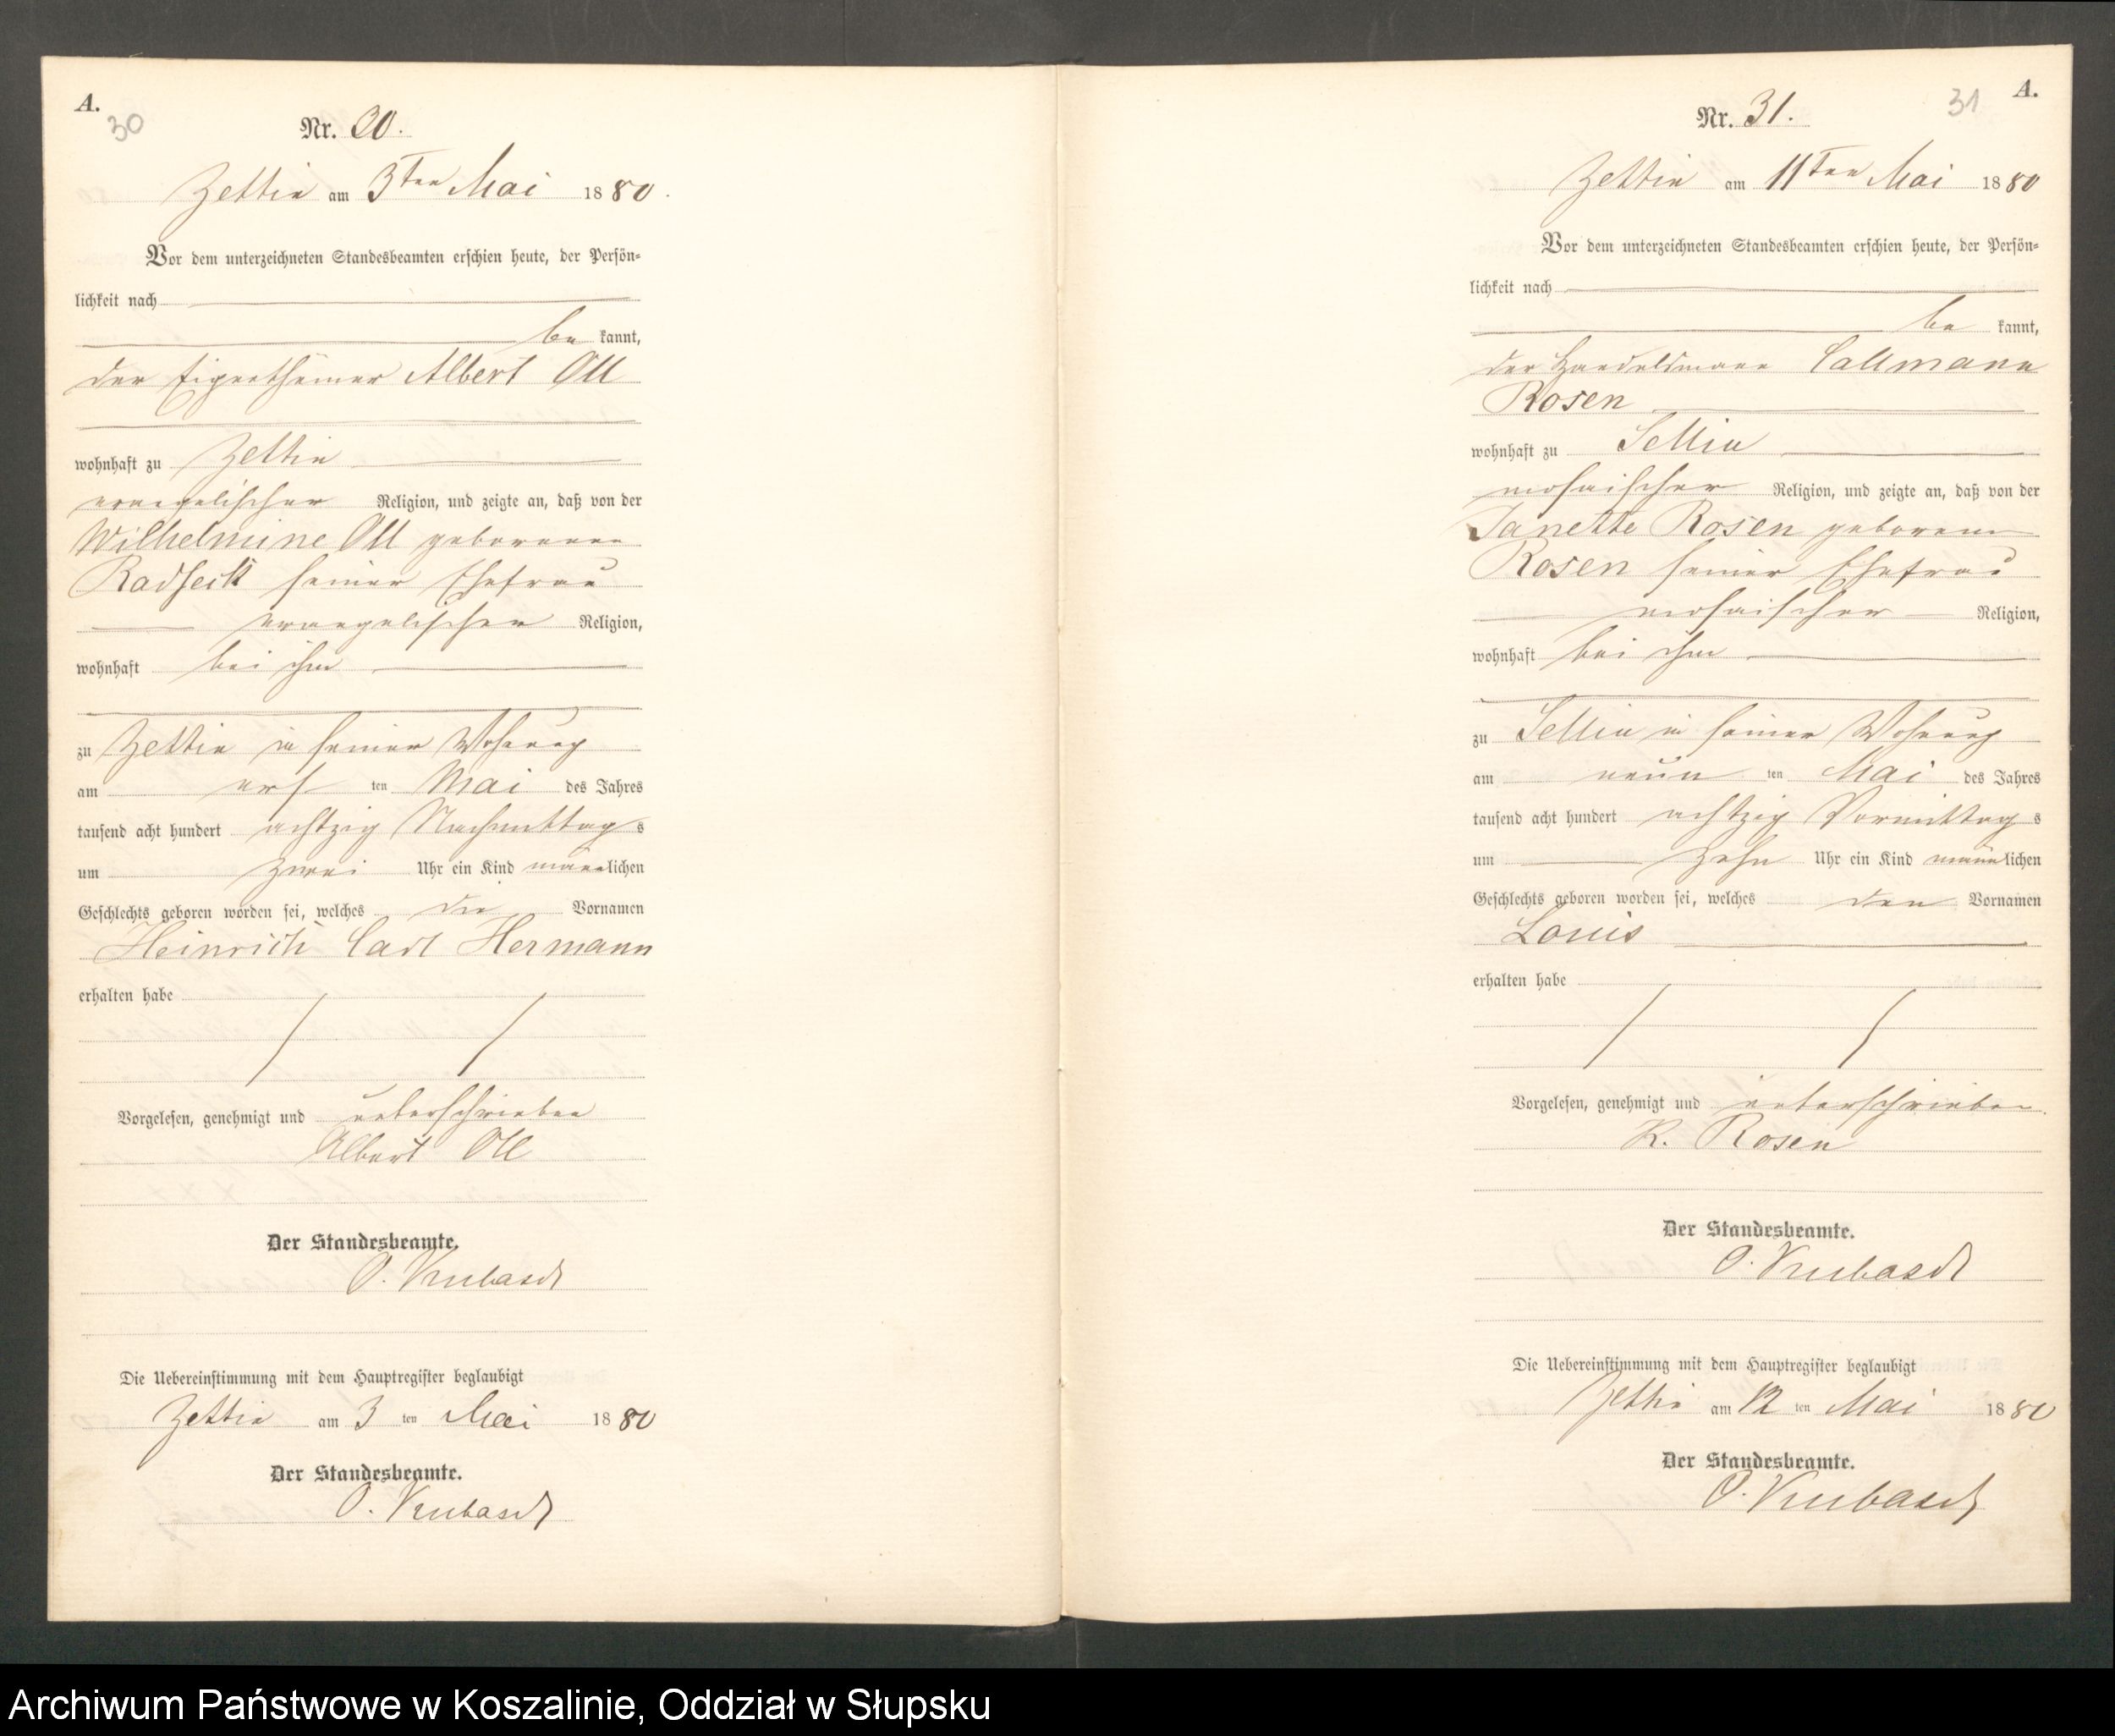 A.
30
Nr. 30.
Zettin am 3ten Mai 1880.
Vor dem unterzeichneten Standesbeamten erschien heute, der Persön-
lichkeit nach
be kannt,
der Eigenthümer Albert Ott
wohnhaft zu Zettin
evangelischer Religion, und zeigte an, daß von der
Wilhelmine Ott geborenen
Radseck seiner Ehefrau
evangelischer Religion,
wohnhaft bei ihm
zu Zettin in seiner Wohnung
am ers ten Mai des Jahres
tausend acht hundert achtzig Nachmittag s
um zwei Uhr ein Kind männlichen
Geschlechts geboren worden sei, welches die Vornamen
Heinrich Carl Hermann
erhalten habe
Vorgelesen, genehmigt und unterschrieben
Albert Ott
Der Standesbeamte.
O.
Die Uebereinstimmung mit dem Hauptregister beglaubigt
Zettin am 3 ten Mai 1880
Der Standesbeamte.
O.
31
A.
Nr. 31.
Zettin am 11ten Mai 1880
Vor dem unterzeichneten Standesbeamten erschien heute, der Persön-
lichkeit nach
be kannt,
der Handelsmann Callmann
Rosen
wohnhaft zu Sellin
mosaischer Religion, und zeigte an, daß von der
Janette Rosen geborene
Rosen seiner Ehefrau
mosaischer Religion,
wohnhaft bei ihm
zu Sellin in seiner Wohnung
am neun ten Mai des Jahres
tausend acht hundert achtzig Vormittag s
um zehn Uhr ein Kind männlichen
Geschlechts geboren worden sei, welches den Vornamen
Louis
erhalten habe
Vorgelesen, genehmigt und unterschrieben
K. Rosen
Der Standesbeamte.
O.
Die Uebereinstimmung mit dem Hauptregister beglaubigt
Zettin am 12 ten Mai 1880
Der Standesbeamte.
O.
Archiwum Państwowe w Koszalinie, Oddział w Słupsku